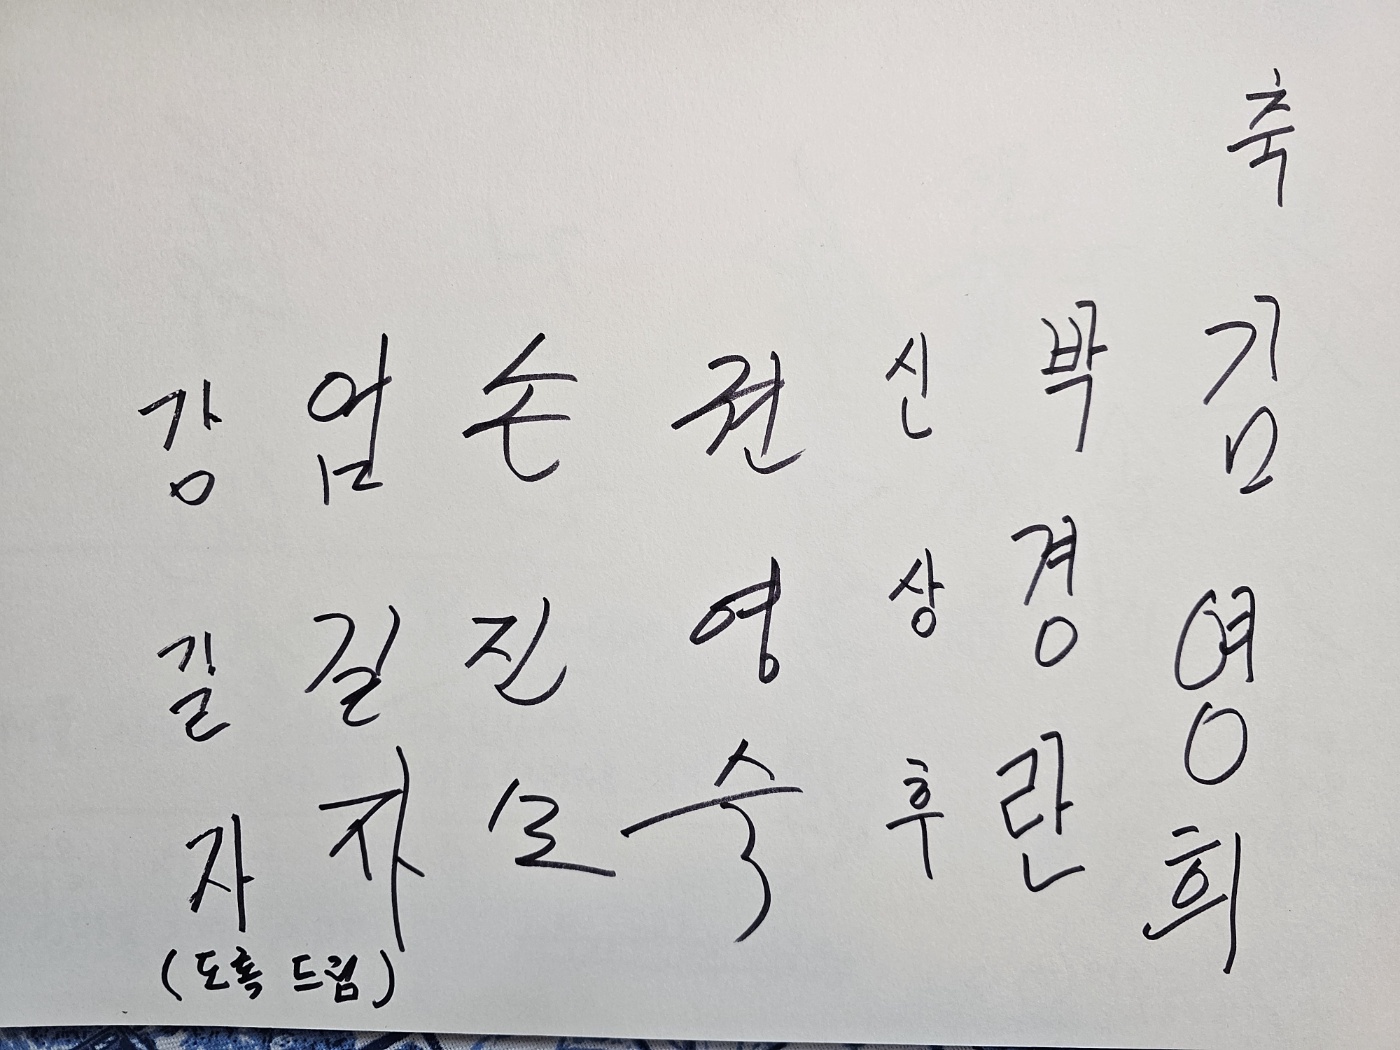 축
김영희
박경란
신상후
권영숙
손진
엄길자
강길자
(도록 드림)